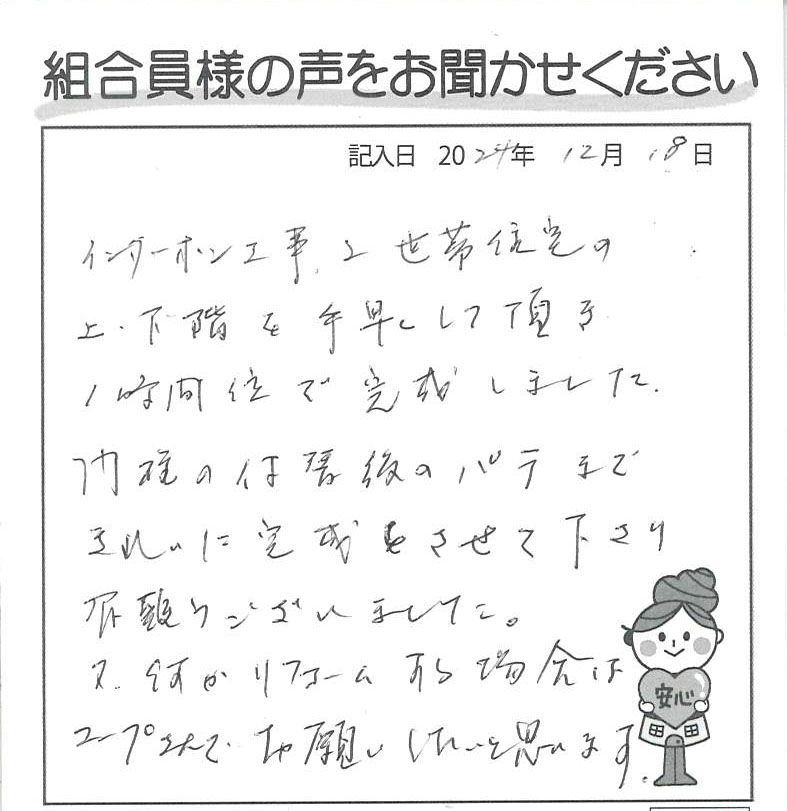 組合員様の声をお聞かせください
記入日 2024年 12月 18日
インターホン工事、2世帯住宅の
上・下階を手早くして頂き
1時間位で完成しました。
門柱の付替後のパテまで
きれいに完成をさせて下さり
有難うございました。
又、何かリフォームする場合は
コープさんで お願いしたいと思います。
安心